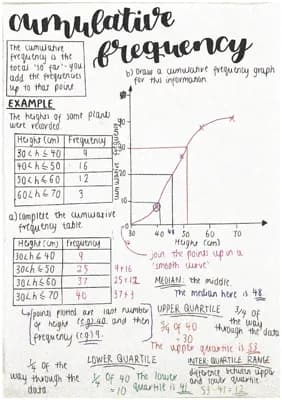 cumulative
frequency
The cumulative
frequency is the
total 'so far' - you
add the frequencies
up to that point
EXAMPLE
The heights of some plants
were recorded.
Height (cm) Frequency
30<h≤40 9
40<h≤50 16
50<h≤60 12
60<h≤70 3
a) Complete the cumulative
frequency table.
Height (cm) Frequency
30<h≤40 9
30<h≤50 25 9+16
30<h≤60 37 25+12
30<h≤70 40 37+3
points plotted are last number
of height (e.g) 40 and then
frequency (e.g) 9.
b) Draw a cumulative frequency graph
for this information.
cumulative frequency
40
30
20
10
30 40 48 50 60 70
Height (cm)
Join the points up in a
'smooth curve'
MEDIAN: the middle.
The median here is 48
UPPER QUARTILE 3/4 of
the way
through the data
3/4 of 40
= 30
The upper quartile is 53
1/4 of the
way through the
data
LOWER QUARTILE
1/4 of 40
= 10
The lower
quartile is 41
INTER-QUARTILE RANGE
difference between upper
and lower quartile.
53-41=12